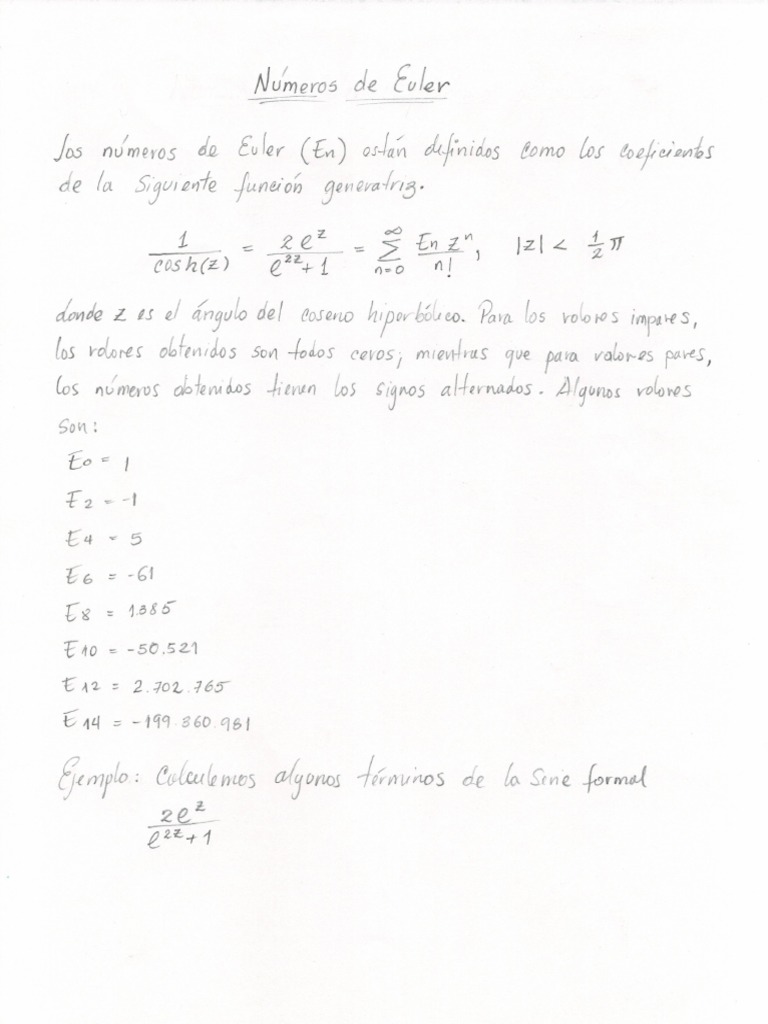 Números de Euler
Los números de Euler (En) están definidos como los coeficientes
de la siguiente función generatriz.
1/cosh(z) = 2e^z/(e^{2z}+1) = ∑_{n=0}^{∞} En z^n/n!, |z| < 1/2 π
donde z es el ángulo del coseno hiperbólico. Para los valores impares,
los valores obtenidos son todos ceros; mientras que para valores pares,
los números obtenidos tienen los signos alternados. Algunos valores
son:
E0 = 1
E2 = -1
E4 = 5
E6 = -61
E8 = 1.385
E10 = -50.521
E12 = 2.702.765
E14 = -199.360.981
Ejemplo: Calculemos algunos términos de la serie formal
2e^z/(e^{2z}+1)